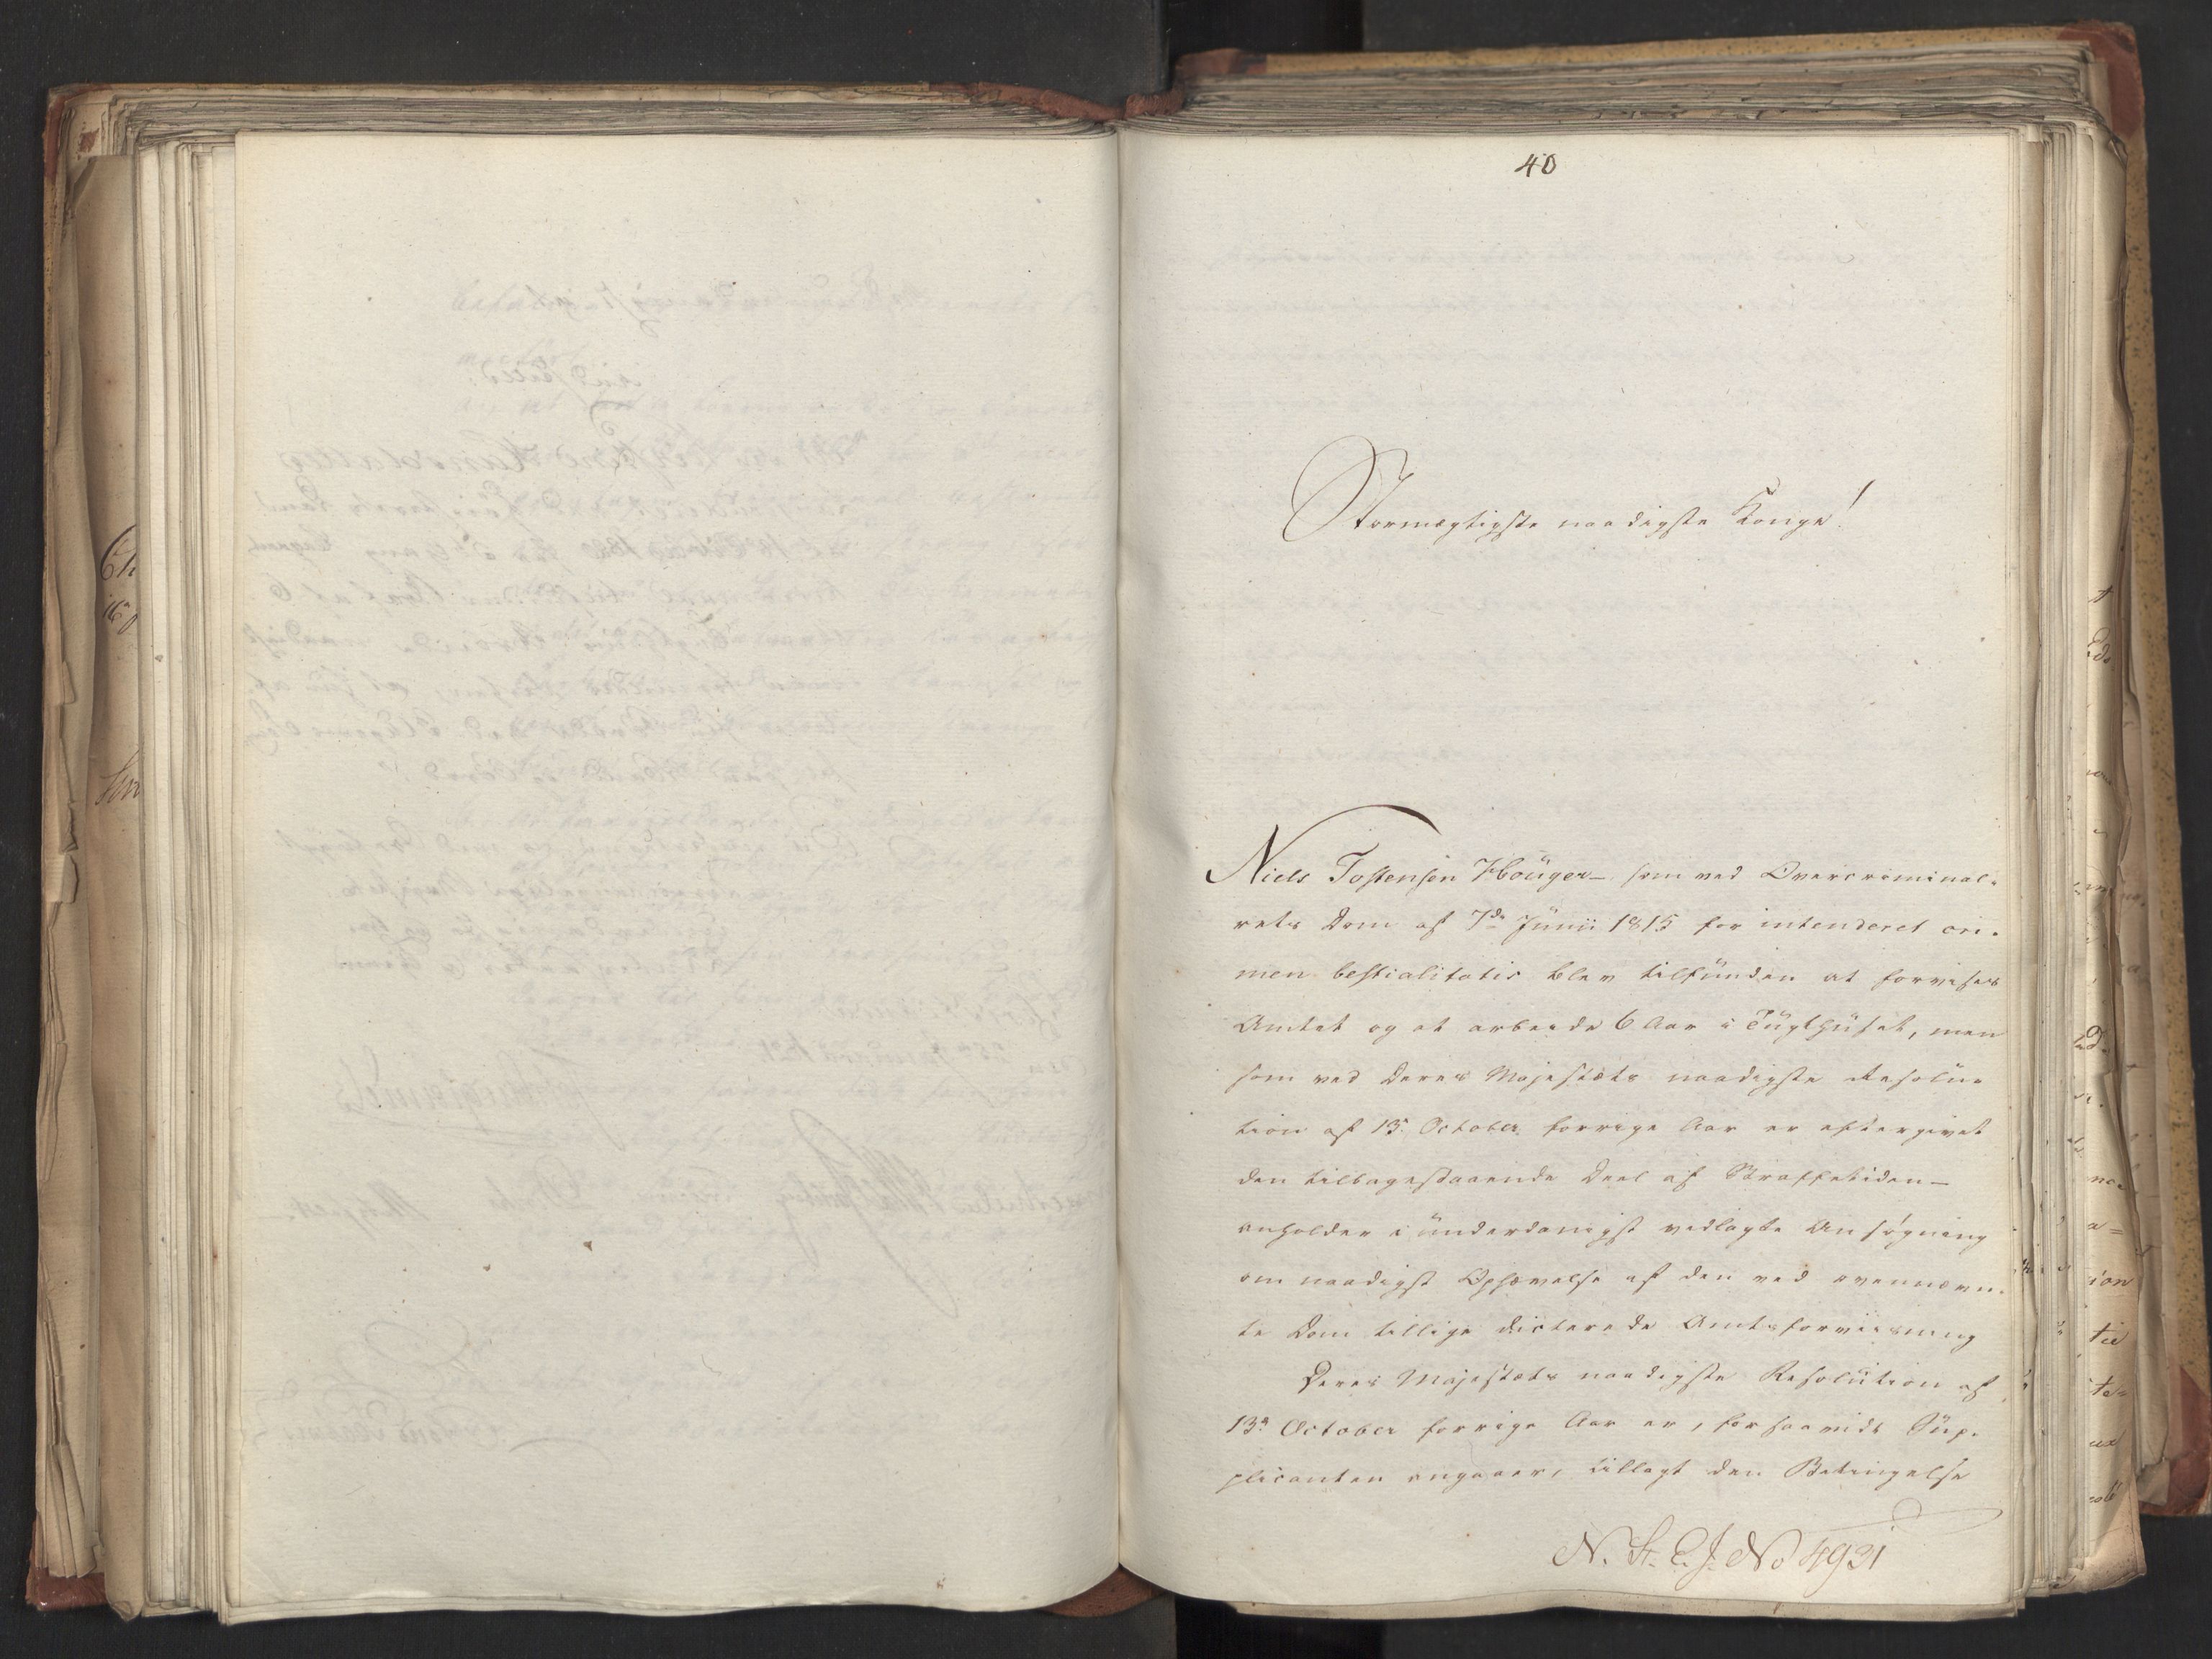 40
Stormægtigste naadigste Konge!
Niels Tostensen Houger – som ved Overcriminal-
rets Dom af 7de Junii 1815 for intenderet cri-
men bestialitatis blev tilfunden at forvises
Amtet og at arbeide 6 Aar i Tugthuset, men
som ved Deres Majestæts naadigste Resolu-
tion af 13. October forrige Aar er eftergivet
den tilbagestaaende Deel af Straffetiden –
anholder i underdanigst vedlagte Ansøgning
om naadigst Ophævelse af den ved ovennævn-
te Dom tillige dicterede Amtsforviisning
Deres Majestæts naadigste Resolution af
13de October forrige Aar er, forsaavidt Sup-
plicanten angaaer, tillagt den Betingelse
N. St. E. J. No 4931